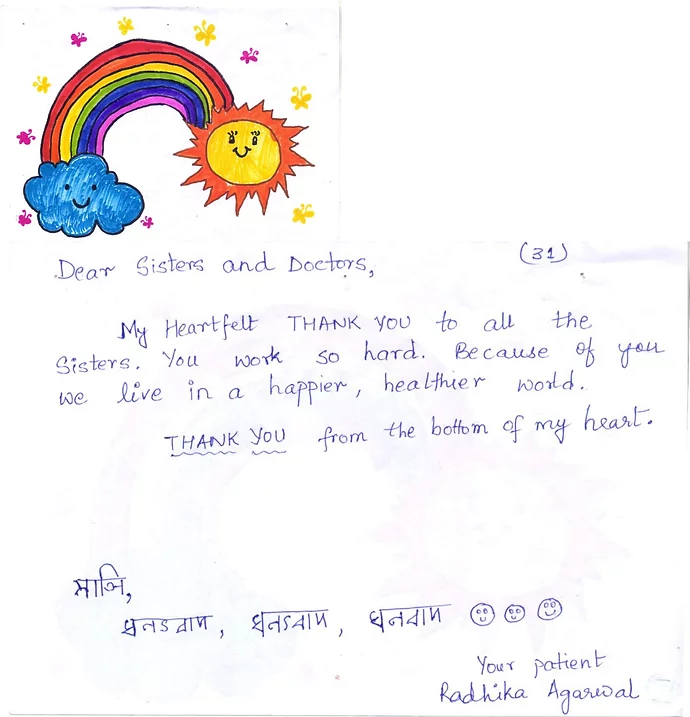 (31)
Dear Sisters and Doctors,
My Heartfelt THANK YOU to all the
Sisters. You work so hard. Because of you
we live in a happier, healthier world.
THANK YOU from the bottom of my heart.
ধনবাদ
Your patient
Radhika Agarwal